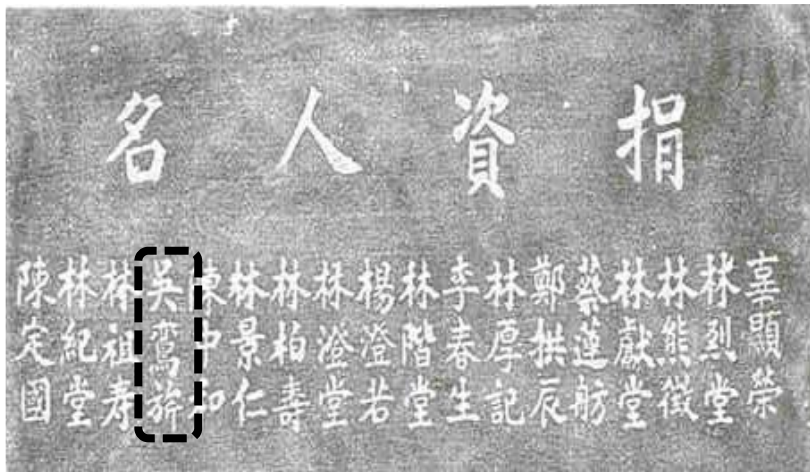 捐資人名
辜顯榮
林烈堂
林熊徵
林獻堂
蔡蓮舫
鄭拱辰
林厚記
李春生
林階堂
楊澄若
林澄堂
林柏壽
林景仁
陳中和
吳鸞旂
林祖壽
林紀堂
陳定國